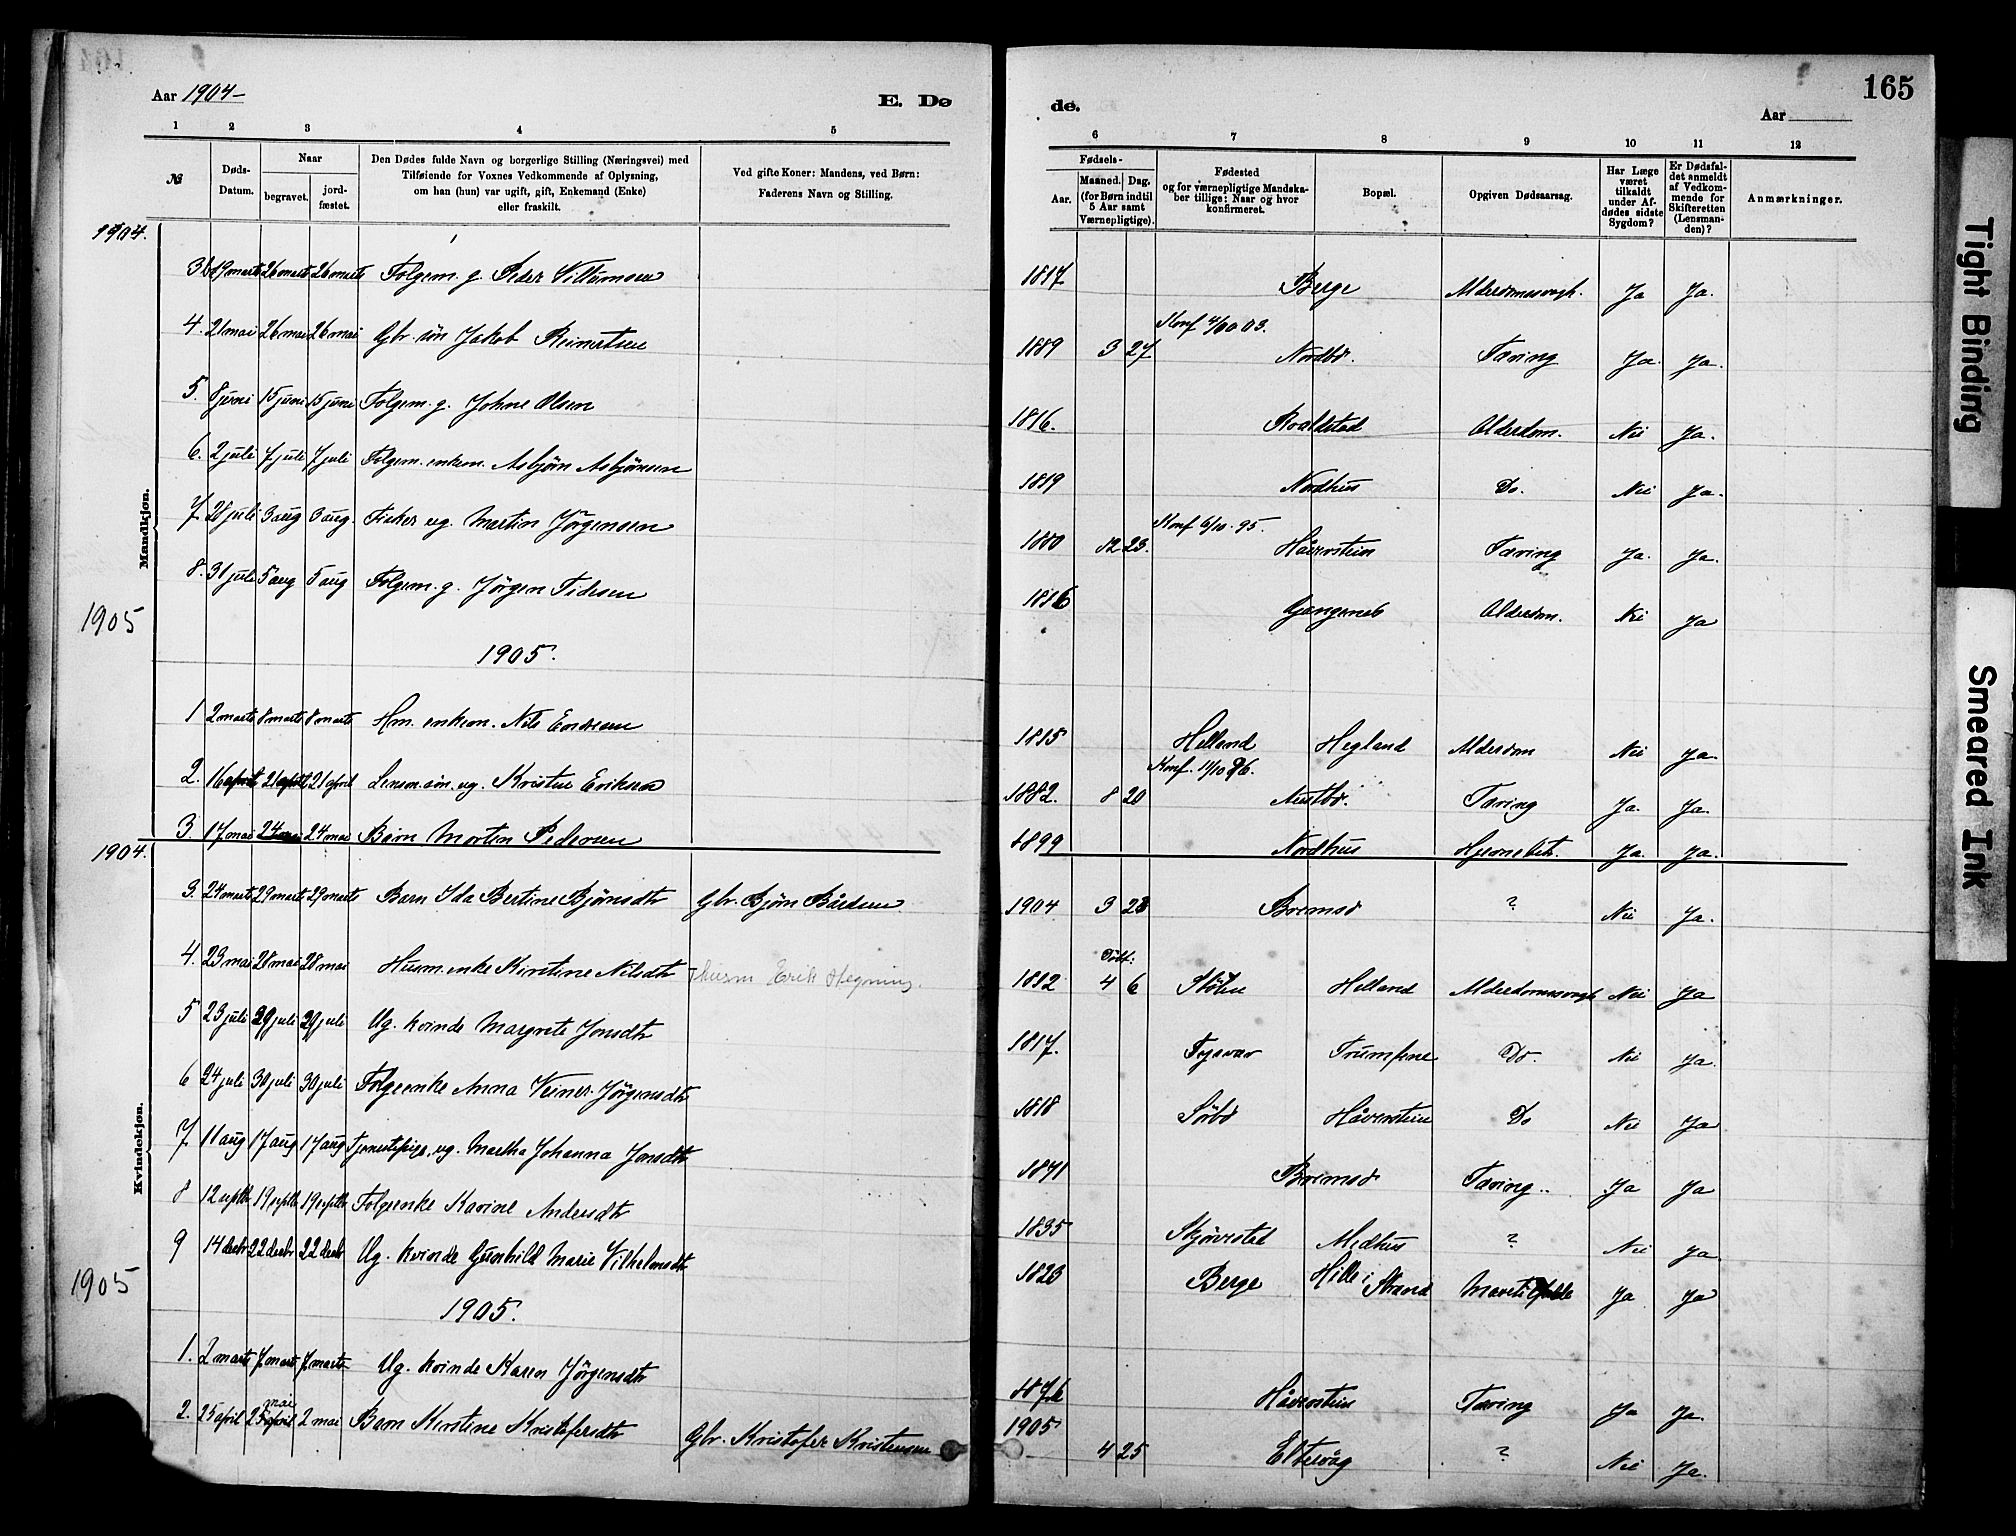 165
Aar 1904-
E. Dø
de.
Aar
1 2 3 4 5 6 7 8 9 10 11 12
№
Døds-Datum.
Naar
begravet.
jord-fæstet.
Den Dødes fulde Navn og borgerlige Stilling (Næringsvei) med
Tilføiende for Voxnes Vedkommende af Oplysning,
om han (hun) var ugift, gift, Enkemand (Enke)
eller fraskilt.
Ved gifte Koner: Mandens, ved Børn:
Faderens Navn og Stilling.
Fødsels-
Aar.
Maaned. Dag.
(for Børn indtil
5 Aar samt
Værnepligtige).
Fødested
og for værnepligtige Mandska-
ber tillige: Naar og hvor
konfirmeret.
Bopæl.
Opgiven Dødsaarsag.
Har Læge
været
tilkaldt
under Af-
dødes sidste
Sygdom?
Er Dødsfal-
det anmeldt
af Vedkom-
mende for
Skifteretten
(Lensman-
den)?
Anmærkninger.
Mandkjøn.
1904.
3 19 marts 26 marts 26 marts Folgem. g. Peder Villumsen 1817 Berge Alderdomssvagh. Ja Ja.
4. 21 mai 26 mai 26 mai Gbr. søn Jakob Reinertsen 1889 3 27 Konf 4/10 03. Nordbø. Tæring Ja. Ja.
5. 8 juni 15 juni 15 juni Folgem. g. Johne Olsen 1816. Kvaldsted Alderdom. Nei Ja.
6. 2 juli 7 juli 7 juli Folgem. enkem. Asbjørn Asbjørnsen 1819 Nordhus Do. Nei Ja.
7 28 juli 3 aug 3 aug. Fisker ug. Martin Jørgensen 1880 12 23. Konf 6/10. 95. Håverstein Tæring Ja. Ja.
8. 31 juli 5 aug 5 aug Folgem. g. Jørgen Tidesen 1816 Gjengenes Alderdom. Nei Ja
1905
1905.
1 2 marts 8 marts 8 marts Hm. enkem. Nils Endresen 1815 Helland Hegland Alderdom Nei Ja.
2. 16 april 21 april 21 april Lensm. søn. ug. Kristen Eriksen 1882. 8 20 Konf. 11/10 96. Austbø. Tæring Ja. Ja.
3 17 mai 24 mai 24 mai Barn Morten Pedersen 1899 Nordhus Hjernebet. Ja. Ja.
Kvindekjøn.
1904.
3. 24 marts 29 marts 29 marts Barn Ida Bertine Bjørnsdtr Gbr. Bjørn Bårdsen. 1904 3 23 Bremsø ? Nei Ja.
4. 23 mai 28 mai 28 mai Husm. enke Kirstine Nilsdtr Husm Erik Hegning. 1812 Født: 4 6 Stølen Helland Alderdomssvagh Nei Ja
5 23 juli 29 juli 29 juli Ug. kvinde Margrete Jonsdtr 1817. Tysvær Trumpene Do. Nei Ja.
6 24 juli 30 juli 30 juli Folgeenke Anna Jørgensdtr 1818 Sørbø Håverstein Do Nei Ja
7 11 aug 17 aug 17 aug Tjenestepige, ug. Martha Johanna Jonsdtr 1841 Bremsø Tæring.. Ja Ja
8 12 septb 19 septb 19 septb Folgeenke Karine Andersdtr 1835 Skjørestad Medhus ? Nei Ja
9 14 decbr 22 decbr 22 decbr Ug. kvinde Gunhild Marie Vilhelmsdtr 1823 Berge Hille i Strand Ja Ja
1905
1905.
1. 2 marts 7 marts 7 marts Ug. kvinde Karen Jørgensdtr 1876 Håverstein Tæring Ja Ja.
2. 25 april 2 mai 2 mai Barn Kirstine Kristofersdtr Gbr. Kristofer Kristensen 1905 4 25 Eltervåg ? Nei Ja.
Tight Binding
Smeared Ink